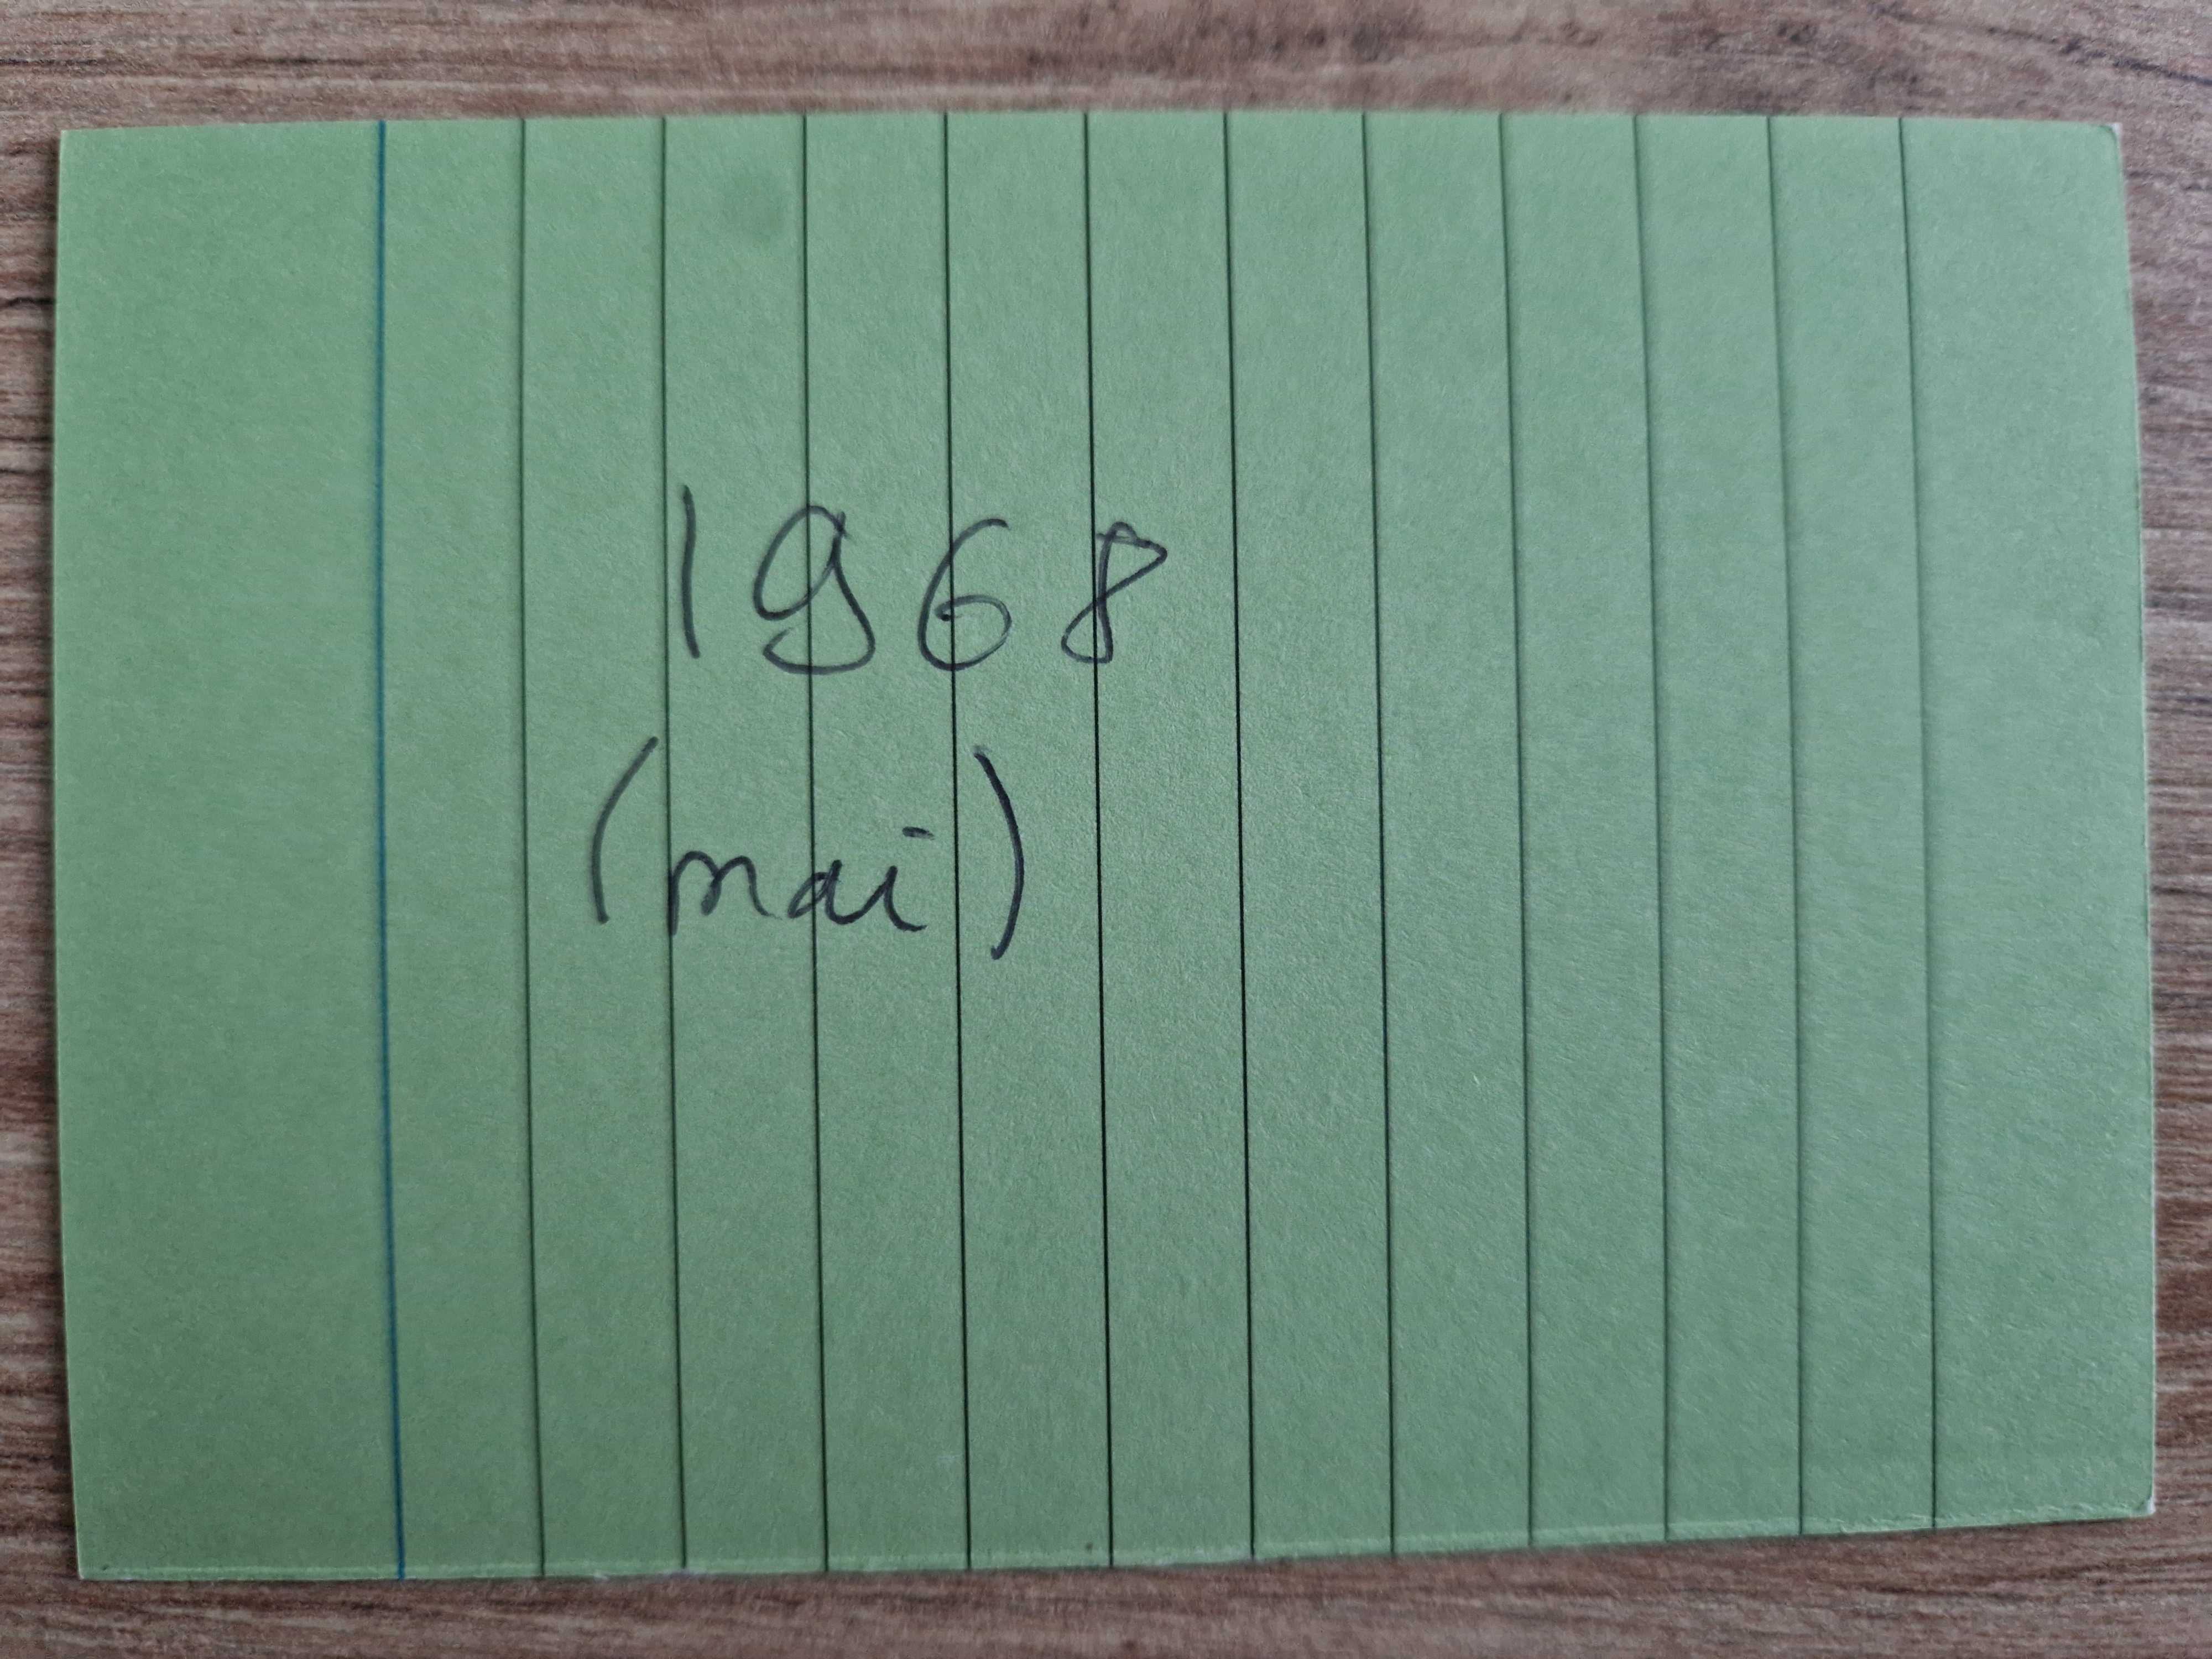 1968
(mai)